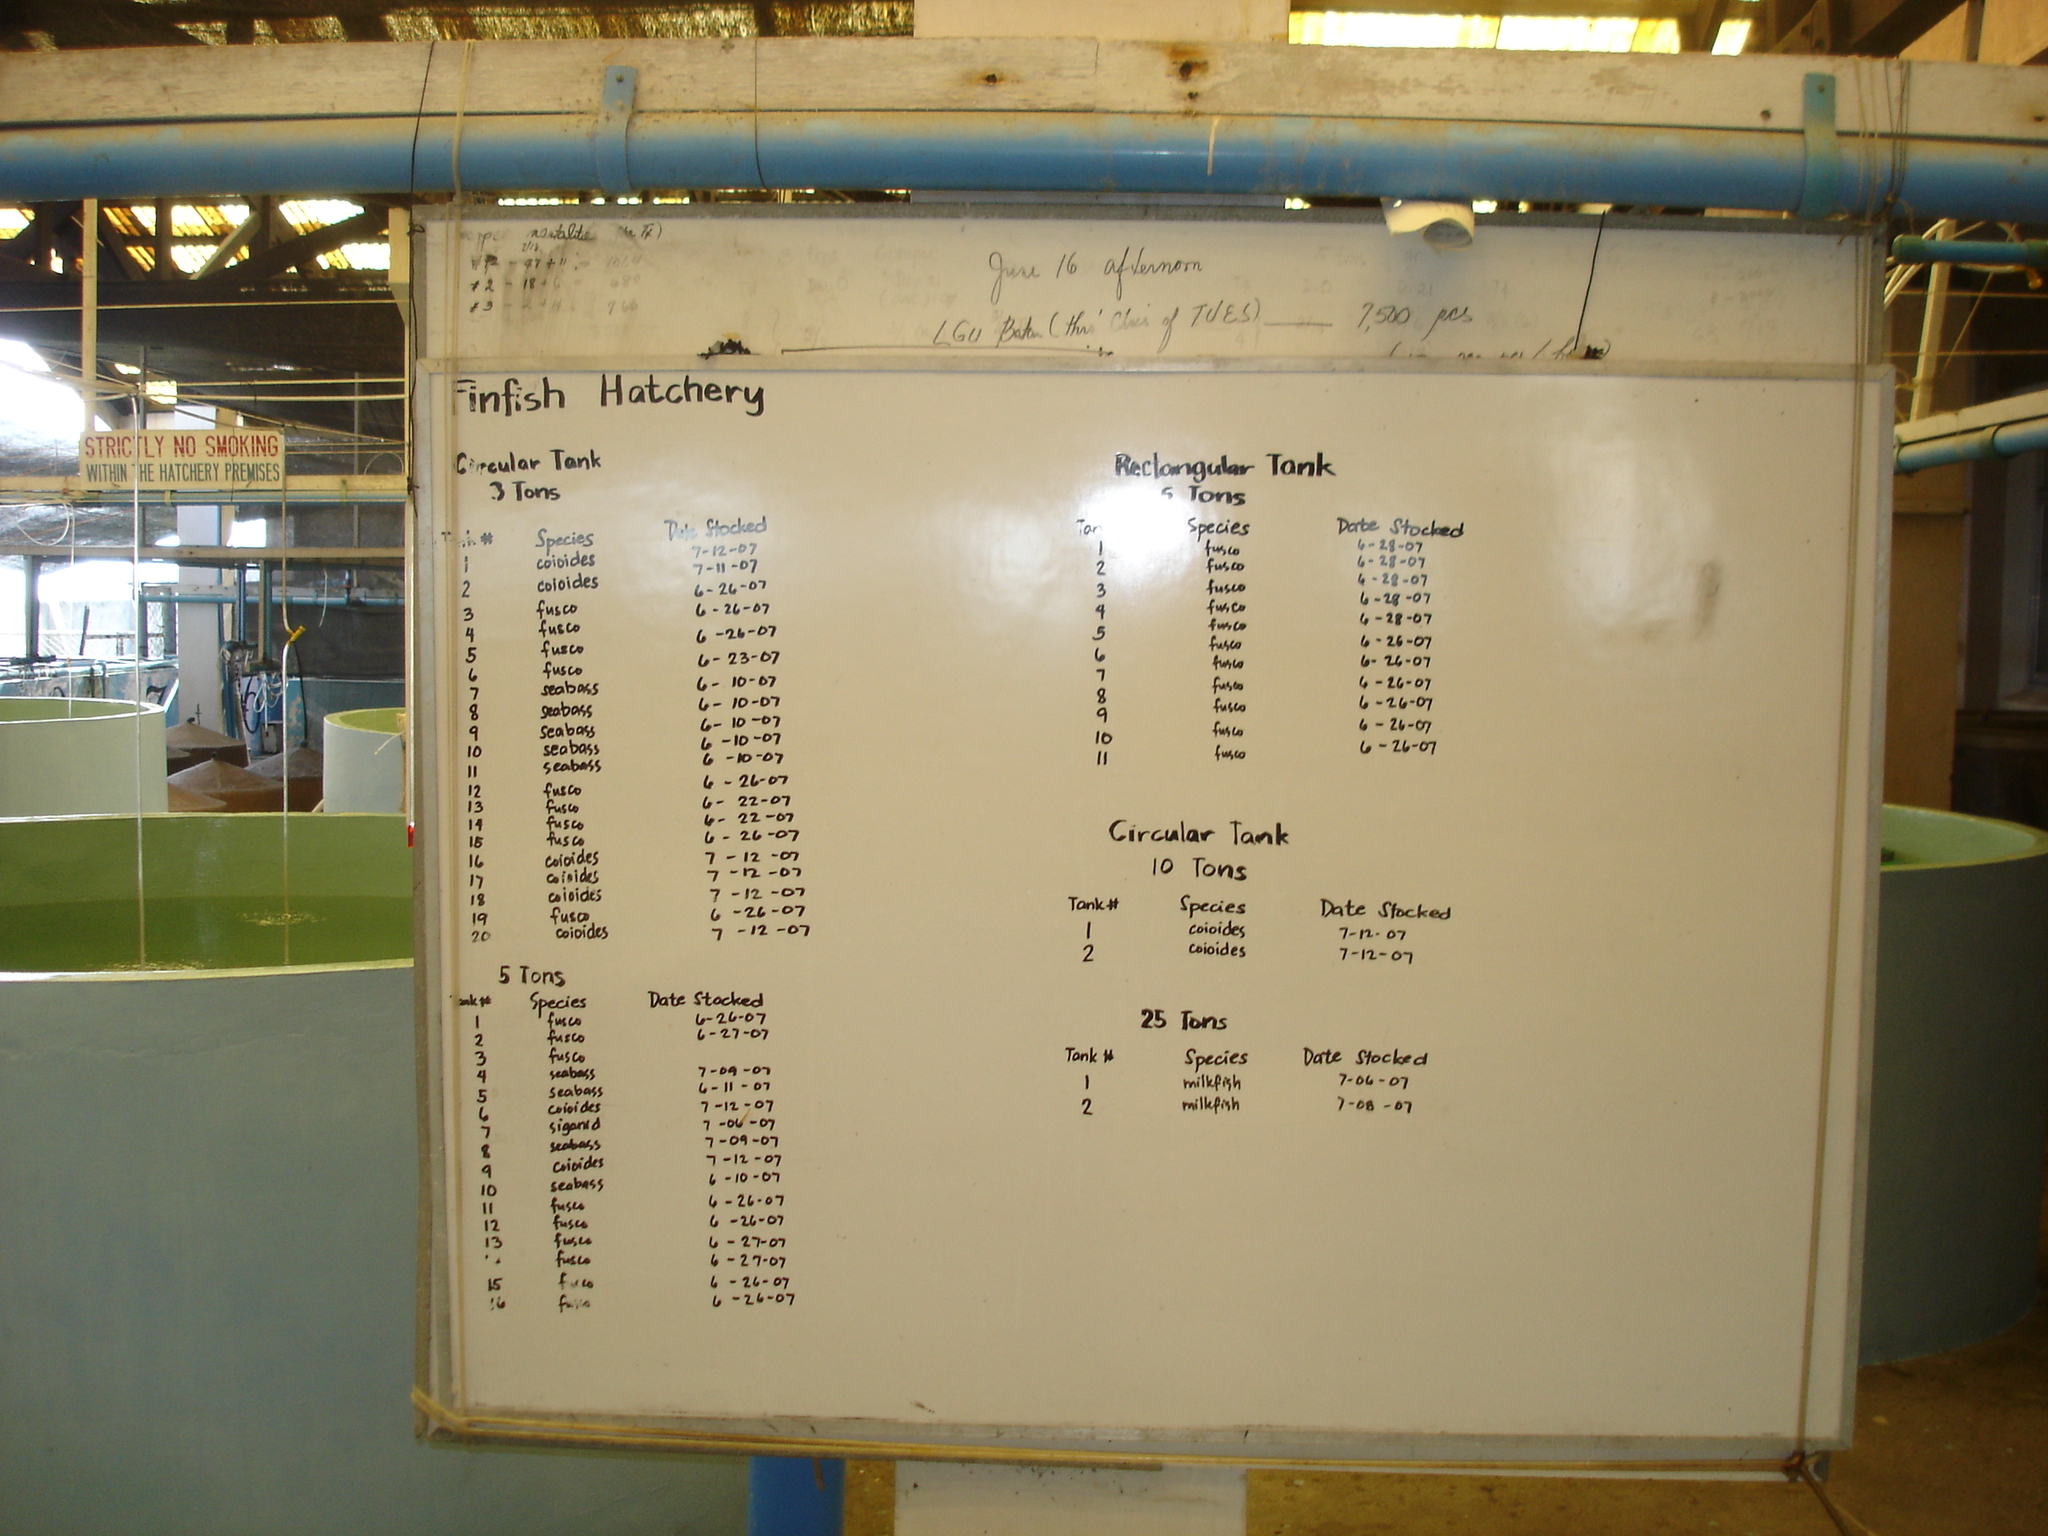 June 16 afternoon
#2 - 18 + 6 - 680
#3
LGU Batan (thru' Chris of TVES) 7,500 pcs
STRICTLY NO SMOKING
WITHIN THE HATCHERY PREMISES
Finfish Hatchery
Circular Tank
3 Tons
Tank # Species Date Stocked
1 coioides 7-12-07
2 coioides 7-11-07
3 fusco 6-26-07
4 fusco 6-26-07
5 fusco 6-26-07
6 fusco 6-23-07
7 seabass 6-10-07
8 seabass 6-10-07
9 seabass 6-10-07
10 seabass 6-10-07
11 seabass 6-10-07
12 fusco 6-26-07
13 fusco 6-22-07
14 fusco 6-22-07
15 fusco 6-26-07
16 coioides 7-12-07
17 coioides 7-12-07
18 coioides 7-12-07
19 fusco 6-26-07
20 coioides 7-12-07
5 Tons
Tank # Species Date Stocked
1 fusco 6-26-07
2 fusco 6-27-07
3 fusco
4 seabass 7-09-07
5 seabass 6-11-07
6 coioides 7-12-07
7 siganid 7-06-07
8 seabass 7-09-07
9 coioides 7-12-07
10 seabass 6-10-07
11 fusco 6-26-07
12 fusco 6-26-07
13 fusco 6-27-07
fusco 6-27-07
15 fusco 6-26-07
16 fusco 6-26-07
Rectangular Tank
5 Tons
Tan Species Date Stocked
1 fusco 6-28-07
2 fusco 6-28-07
3 fusco 6-28-07
4 fusco 6-28-07
5 fusco 6-28-07
6 fusco 6-26-07
7 fusco 6-26-07
8 fusco 6-26-07
9 fusco 6-26-07
10 fusco 6-26-07
11 fusco 6-26-07
Circular Tank
10 Tons
Tank # Species Date Stocked
1 coioides 7-12-07
2 coioides 7-12-07
25 Tons
Tank # Species Date Stocked
1 milkfish 7-06-07
2 milkfish 7-08-07